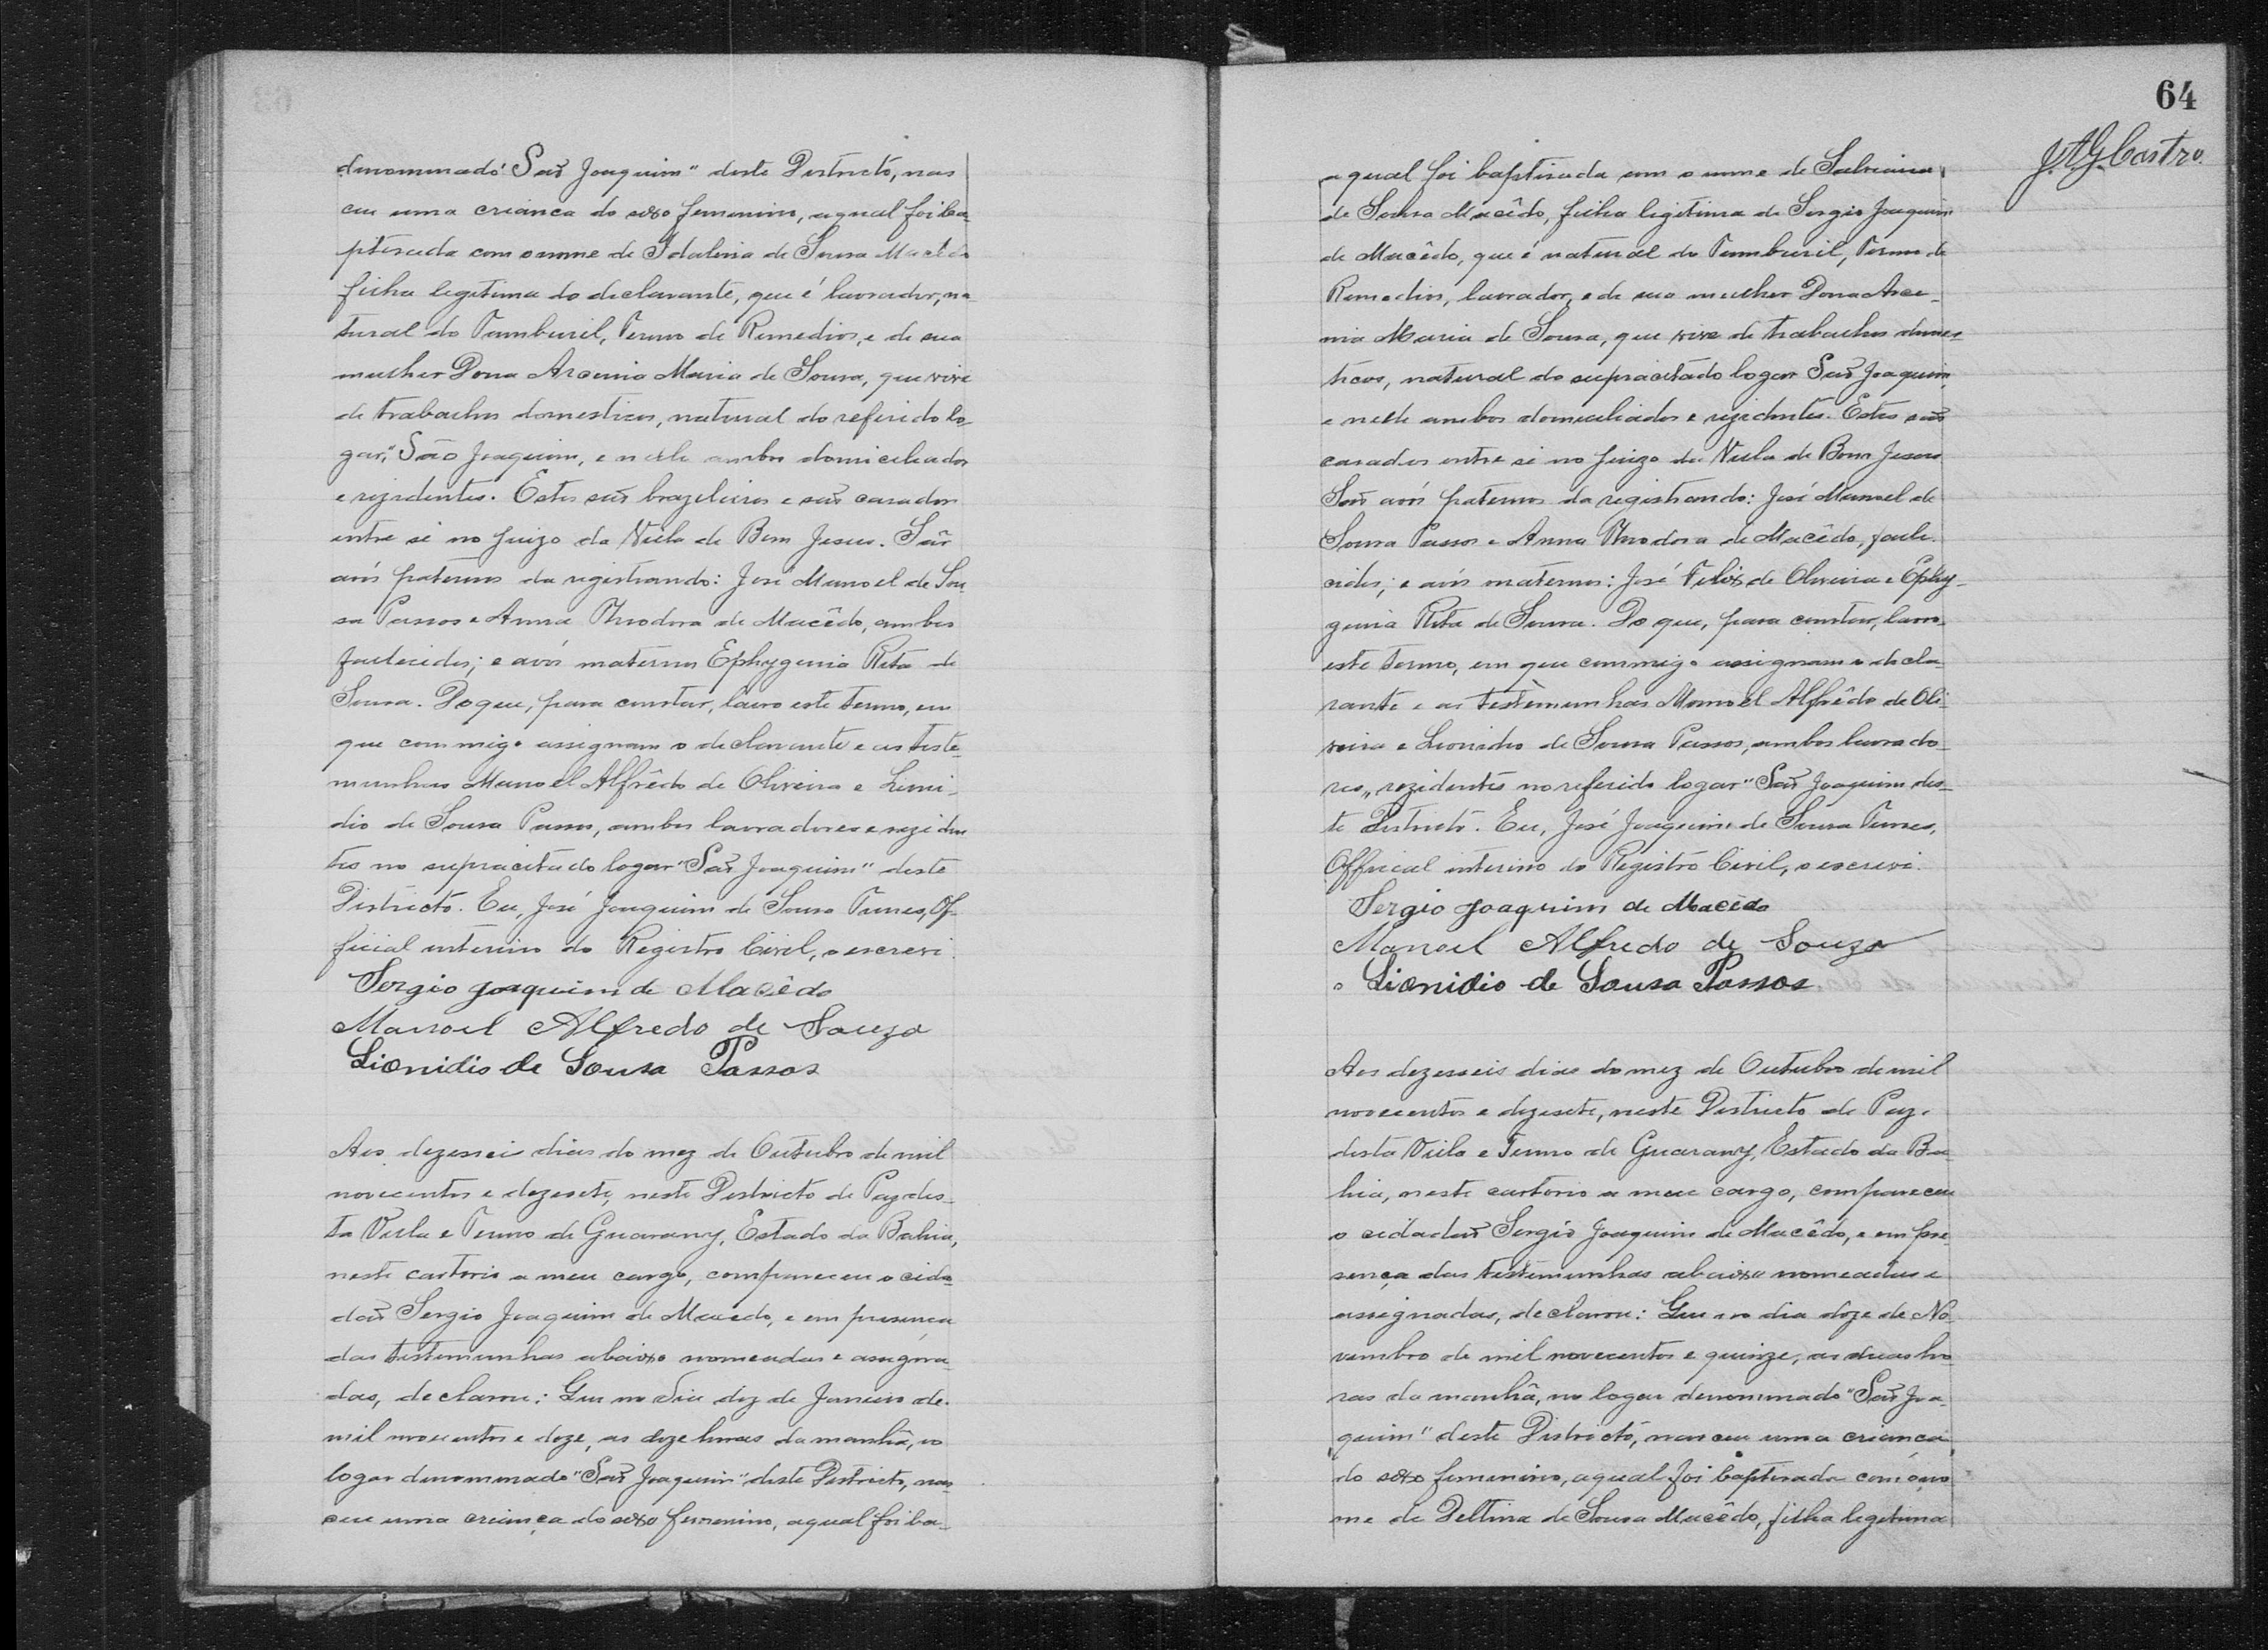 denominado "São Joaquim" deste Districto, nas
ceu uma criança do sexo femenino, a qual foi ba-
ptisada com o nome de Idalina de Sousa Macêdo
filha legitima do declarante, que é lavrador, na
tural do Tamburil, Termo de Remedios, e de sua
mulher Dona Arcenia Maria de Sousa, que vive
de trabalhos domesticos, natural do referido lo-
gar, "São Joaquim, e nelle ambos domiciliados
e rezidentes. Estes são brazileiros e são casados
entre si no Juizo da Villa de Bom Jesus. São
avós paternos da registrando: José Manoel de Sou
sa Passos e Anna Theodora de Macêdo, ambos
fallecidos; e avós maternos Ephygenia Rita de
Sousa. Do que, para constar, lavro este termo, em
que commigo assignam o declarante e as teste-
munhas Manoel Alfrêdo de Oliveira e Leoni-
dio de Sousa Passos, ambos lavradores e reziden
tes no supracitado logar "São Joaquim" deste
Districto. Eu, José Joaquim de Sousa Tunes, Of-
ficial interino do Registro Civil, o escrevi.
Sergio Joaquim de Macêdo
Manoel Alfredo de Souza
Lionidio de Sousa Passos
Aos dezesseis dias do mez de Outubro de mil
novecentos e dezesete, neste Districto de Paz des-
ta Villa e Termo de Guarany, Estado da Bahia,
neste cartorio a meu cargo, compareceu o cida-
dão Sergio Joaquim de Macedo, e em presença
das testemunhas abaixo nomeadas e assigna-
das, declarou: Que no dia dez de Janeiro de
mil novecentos e doze, as doze horas da manhã, no
logar denominado "São Joaquim" deste Districto, nas-
ceu uma criança do sexo femenino, a qual foi ba-
64
J.A.G. Castro.
a qual foi baptisada com o nome de
de Sousa Macêdo, filha legitima de Sergio Joaquim
de Macêdo, que é natural do Tamburil, Termo de
Remedios, lavrador, e de sua mulher Dona Arce-
nia Maria de Sousa, que vive de trabalhos domes-
ticos, natural do supracitado logar São Joaquim,
e nelle ambos domiciliados e rezidentes. Estes são
casados entre si no Juizo da Villa de Bom Jesus
São avós paternos da registrando: José Manoel de
Sousa Passos e Anna Theodora de Macêdo, falle-
cidos; e avós maternos: José Felix de Oliveira e Ephy-
genia Rita de Sousa. Do que, para constar, lavro
este termo, em que commigo assignam o decla-
rante e as testemunhas Manoel Alfrêdo de Oli-
veira e Leonidio de Sousa Passos, ambos lavrado-
res, rezidentes no referido logar "São Joaquim des-
te Districto. Eu, José Joaquim de Sousa Tunes,
Official interino do Registro Civil, o escrevi.
Sergio Joaquim de Macêdo
Manoel Alfredo de Souza
Lionidio de Sousa Passos
Aos dezesseis dias do mez de Outubro de mil
novecentos e dezesete, neste Districto de Paz
desta Villa e Termo de Guarany, Estado da Ba-
hia, neste cartorio a meu cargo, compareceu
o cidadão Sergio Joaquim de Macêdo, e em pre-
sença das testemunhas abaixo nomeadas e
assignadas, declarou: Que no dia doze de No-
vembro de mil novecentos e quinze, as duas ho-
ras da manhã, no logar denominado "São Joa-
quim" deste Districto, nasceu uma criança
do sexo femenino, a qual foi baptisada com o no-
me de Deltina de Sousa Macêdo, filha legitima